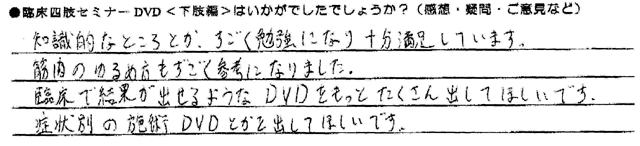 ●臨床四肢セミナーDVD＜下肢編＞はいかがでしたでしょうか？（感想・疑問・ご意見など）
知識的なところとか、すごく勉強になり十分満足しています。
筋肉のゆるめ方もすごく参考になりました。
臨床で結果が出せるようなDVDをもっとたくさん出してほしいです。
症状別の施術DVDとかを出してほしいです。